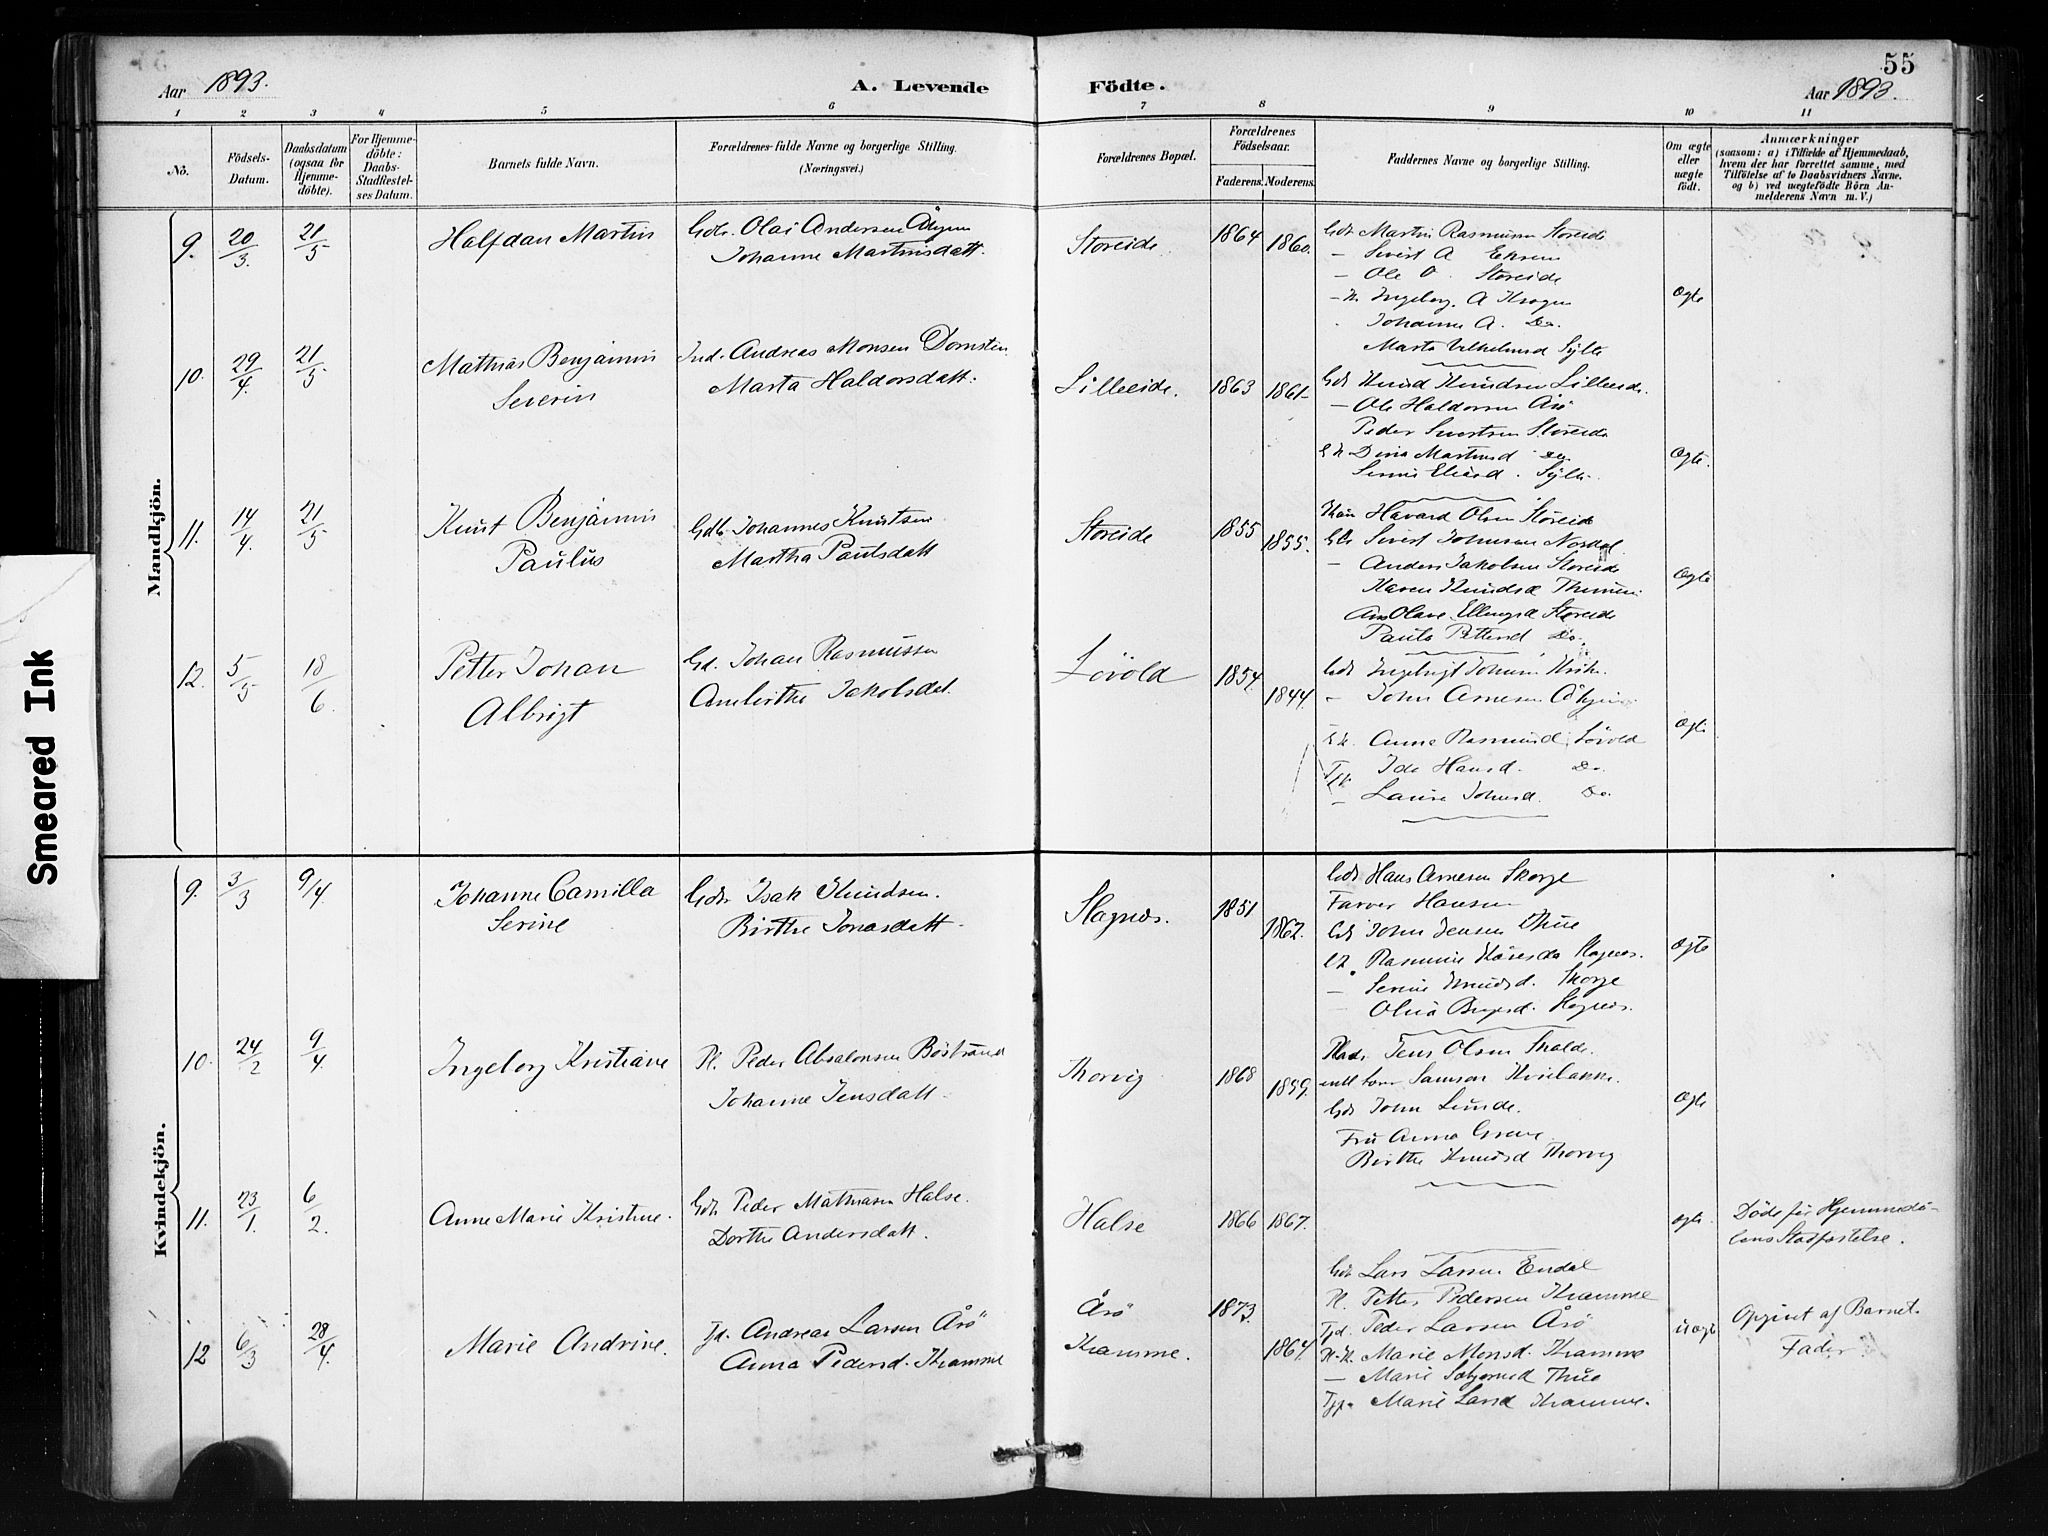 55
Aar 1893.
A. Levende
Födte.
Aar 1893.
1 2 3 4 5 6 7 8 9 10 11
No.
Födsels-
Datum.
Daabsdatum
(ogsaa for
Hjemme-
döbte).
For Hjemme-
döbte:
Daabs-
Stadfæstel-
ses Datum.
Barnets fulde Navn.
Forældrenes fulde Navne og borgerlige Stilling.
(Næringsvei.)
Forældrenes Bopæl.
Forældrenes
Födselsaar.
Faderens. Moderens.
Faddernes Navne og borgerlige Stilling.
Om ægte
eller
uægte
födt.
Anmærkninger
(saasom: a) i Tilfælde af Hjemmedaab,
hvem der har forrettet samme, med
Tilföielse af to Daabsvidners Navne.
og b) ved uægtefödte Börn An-
melderens Navn m. V.)
Mandkjön.
9. 20/3. 21/5 Halfdan Martin
Gdb. Olai Andersen
Johanne Martinsdatt.
Storeide 1864 1860.
Gdb Martin Rasmusen Storeide
- Sivert A
- Ole O. Storeide
Ingeborg. A Krogen
Johanne A. Do.
Marta Sylte
Ægte
10. 29/4. 21/5 Mathias Benjamin
Severin
Ind. Andreas Monsen Dornsten
Marta Haldorsdatt.
Lilleeide. 1863 1861
Gdb Knud Knudsen Lilleeide.
- Ole Haldorsen Årö
Peder Sivertsen Storeide
Dina Do
Sylte
Ægte.
11. 14/4. 21/5 Knut Benjamin
Paulus
Gdb Johannes Knutsen
Martha Paulsdatt
Storeide 1855 1855.
Havard Olsen Storeide
Sivert Johnsen Nordal
- Anders Jakobsen Storeide
Karen Knudsd
Olave Ellingsd Storeide
Paula Pettersd Do.
Ægte
12. 5/5 18/6. Petter Johan
Albrigt
Gd. Johan Rasmussen
Jakobsdat.
Lövold 1854 1844.
Gdb Ingebrigt
- John Arnesen
Anna Rasmusd. Lövold
Ida Hansd. Do.
- Laura Johnsd. Do.
Ægte
Kvindekjön.
9. 3/3 9/4. Johanne Camilla
Serine
Gdb Isak Knudsen.
Birthe Jonasdatt.
Slagnes. 1851 1862.
Gdb Hans Arnesen Skorge
Farver Hansen
Gdb John Jensen Thue
Rasmine
- Serine Knudsd. Skorge
Olivia
Ægte
10. 24/2 9/4. Ingeborg Kristiane
Pl. Peder Absalonsen Böstrand
Johanne Jensdatt.
Thorvig 1868 1859.
Jens Olsen Skolde.
Samson
Gdb John Lunde.
Fru Anna Greve
Birthe Knudsd Thorvig
Ægte
11. 23/1. 6/2. Anne Marie Kristine.
Gdb Peder Mathiasen Halse.
Dorthe Andersdatt.
Halse 1866 1867.
Ægte.
Döde för Hjemmedö-
bens Stadfæstelse.
12 6/3 28/4. Marie Andrine.
Tj. Andreas Larsen Årö
Anna Pedersd. Kramme
Årö
Kramme. 1873. 1864.
Gdb Lars Larsen Eidal
Pl. Petter Pedersen Kramme
Tjd. Peder Larsen Årö
Marie Monsd. Kramme
- Marie Thue
Marie Larsd Kramme.
uægte
Opgivet af Barnets
Fader.
Smeared Ink